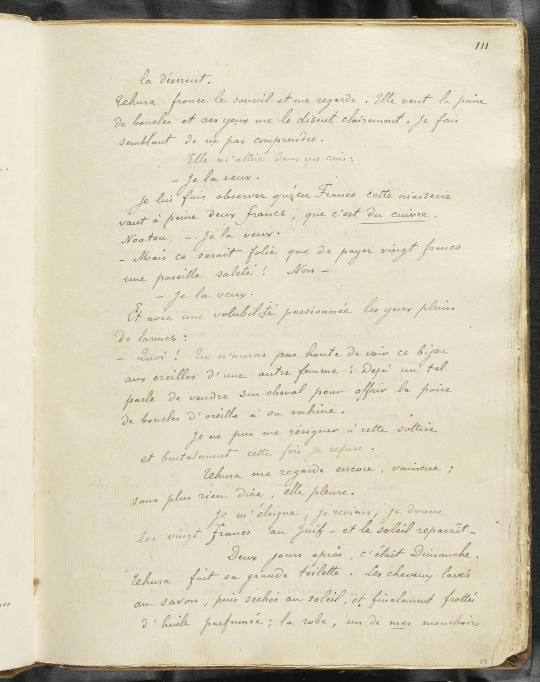 111
la désirent.
Tehura fronce le sourcil et me regarde. Elle veut la paire
de boucles et ses yeux me le disent clairement. Je fais
semblant de ne pas comprendre.
Elle m'attire dans un coin :
– Je la veux.
Je lui fais observer qu'en France cette niaiserie
vaut à peine deux francs, que c'est du cuivre.
Noatou. – Je la veux.
– Mais ce serait folie que de payer vingt francs
une pareille saleté ! Non –
– Je la veux.
Et avec une volubilité passionnée les yeux pleins
de larmes :
– Quoi ! Tu n'auras pas honte de voir ce bijou
aux oreilles d'une autre femme ! Dejà un tel
parle de vendre son cheval pour offrir la paire
de boucles d'oreille à sa vahine.
Je ne puis me résigner à cette sottise
et brutalement cette fois je refuse.
Tehura me regarde encore, vaincue ;
sans plus rien dire, elle pleure.
Je m'éloigne, je reviens, je donne
les vingt francs au Juif – et le soleil reparaît –
Deux jours après, c'était Dimanche.
Tehura fait sa grande toilette. Les cheveux lavés
au savon, puis sechés au soleil, et finalement frottés
d'huile parfumée ; la robe, un de mes mouchoirs
59